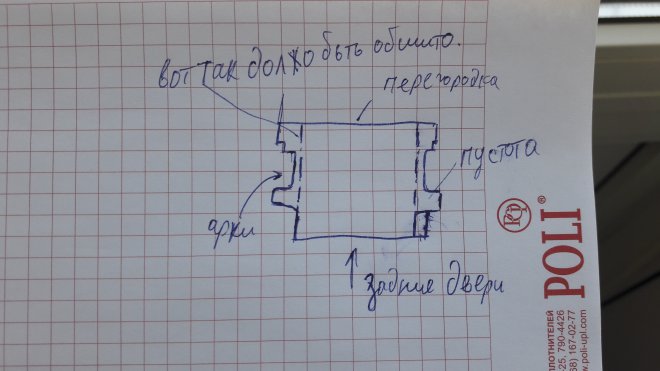 вот так должно быть обшито.
перегородка
пустота
арки
задние двери
Kp
POLI®
ПЛОТНИТЕЛЕЙ
25, 790-4426
) 167-02-77
www.poli-upl.com